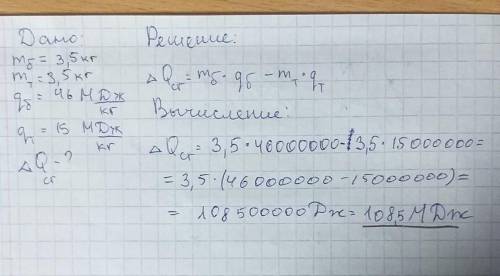 Дано:
mб = 3,5 кг
mт = 3,5 кг
qб = 46 МДж/кг
qт = 15 МДж/кг
ΔQсг - ?
Решение:
ΔQсг = mб · qб - mт · qт
Вычисление:
ΔQсг = 3,5 · 46000000 - 3,5 · 15000000 =
= 3,5 · (46000000 - 15000000) =
= 108500000 Дж = 108,5 МДж